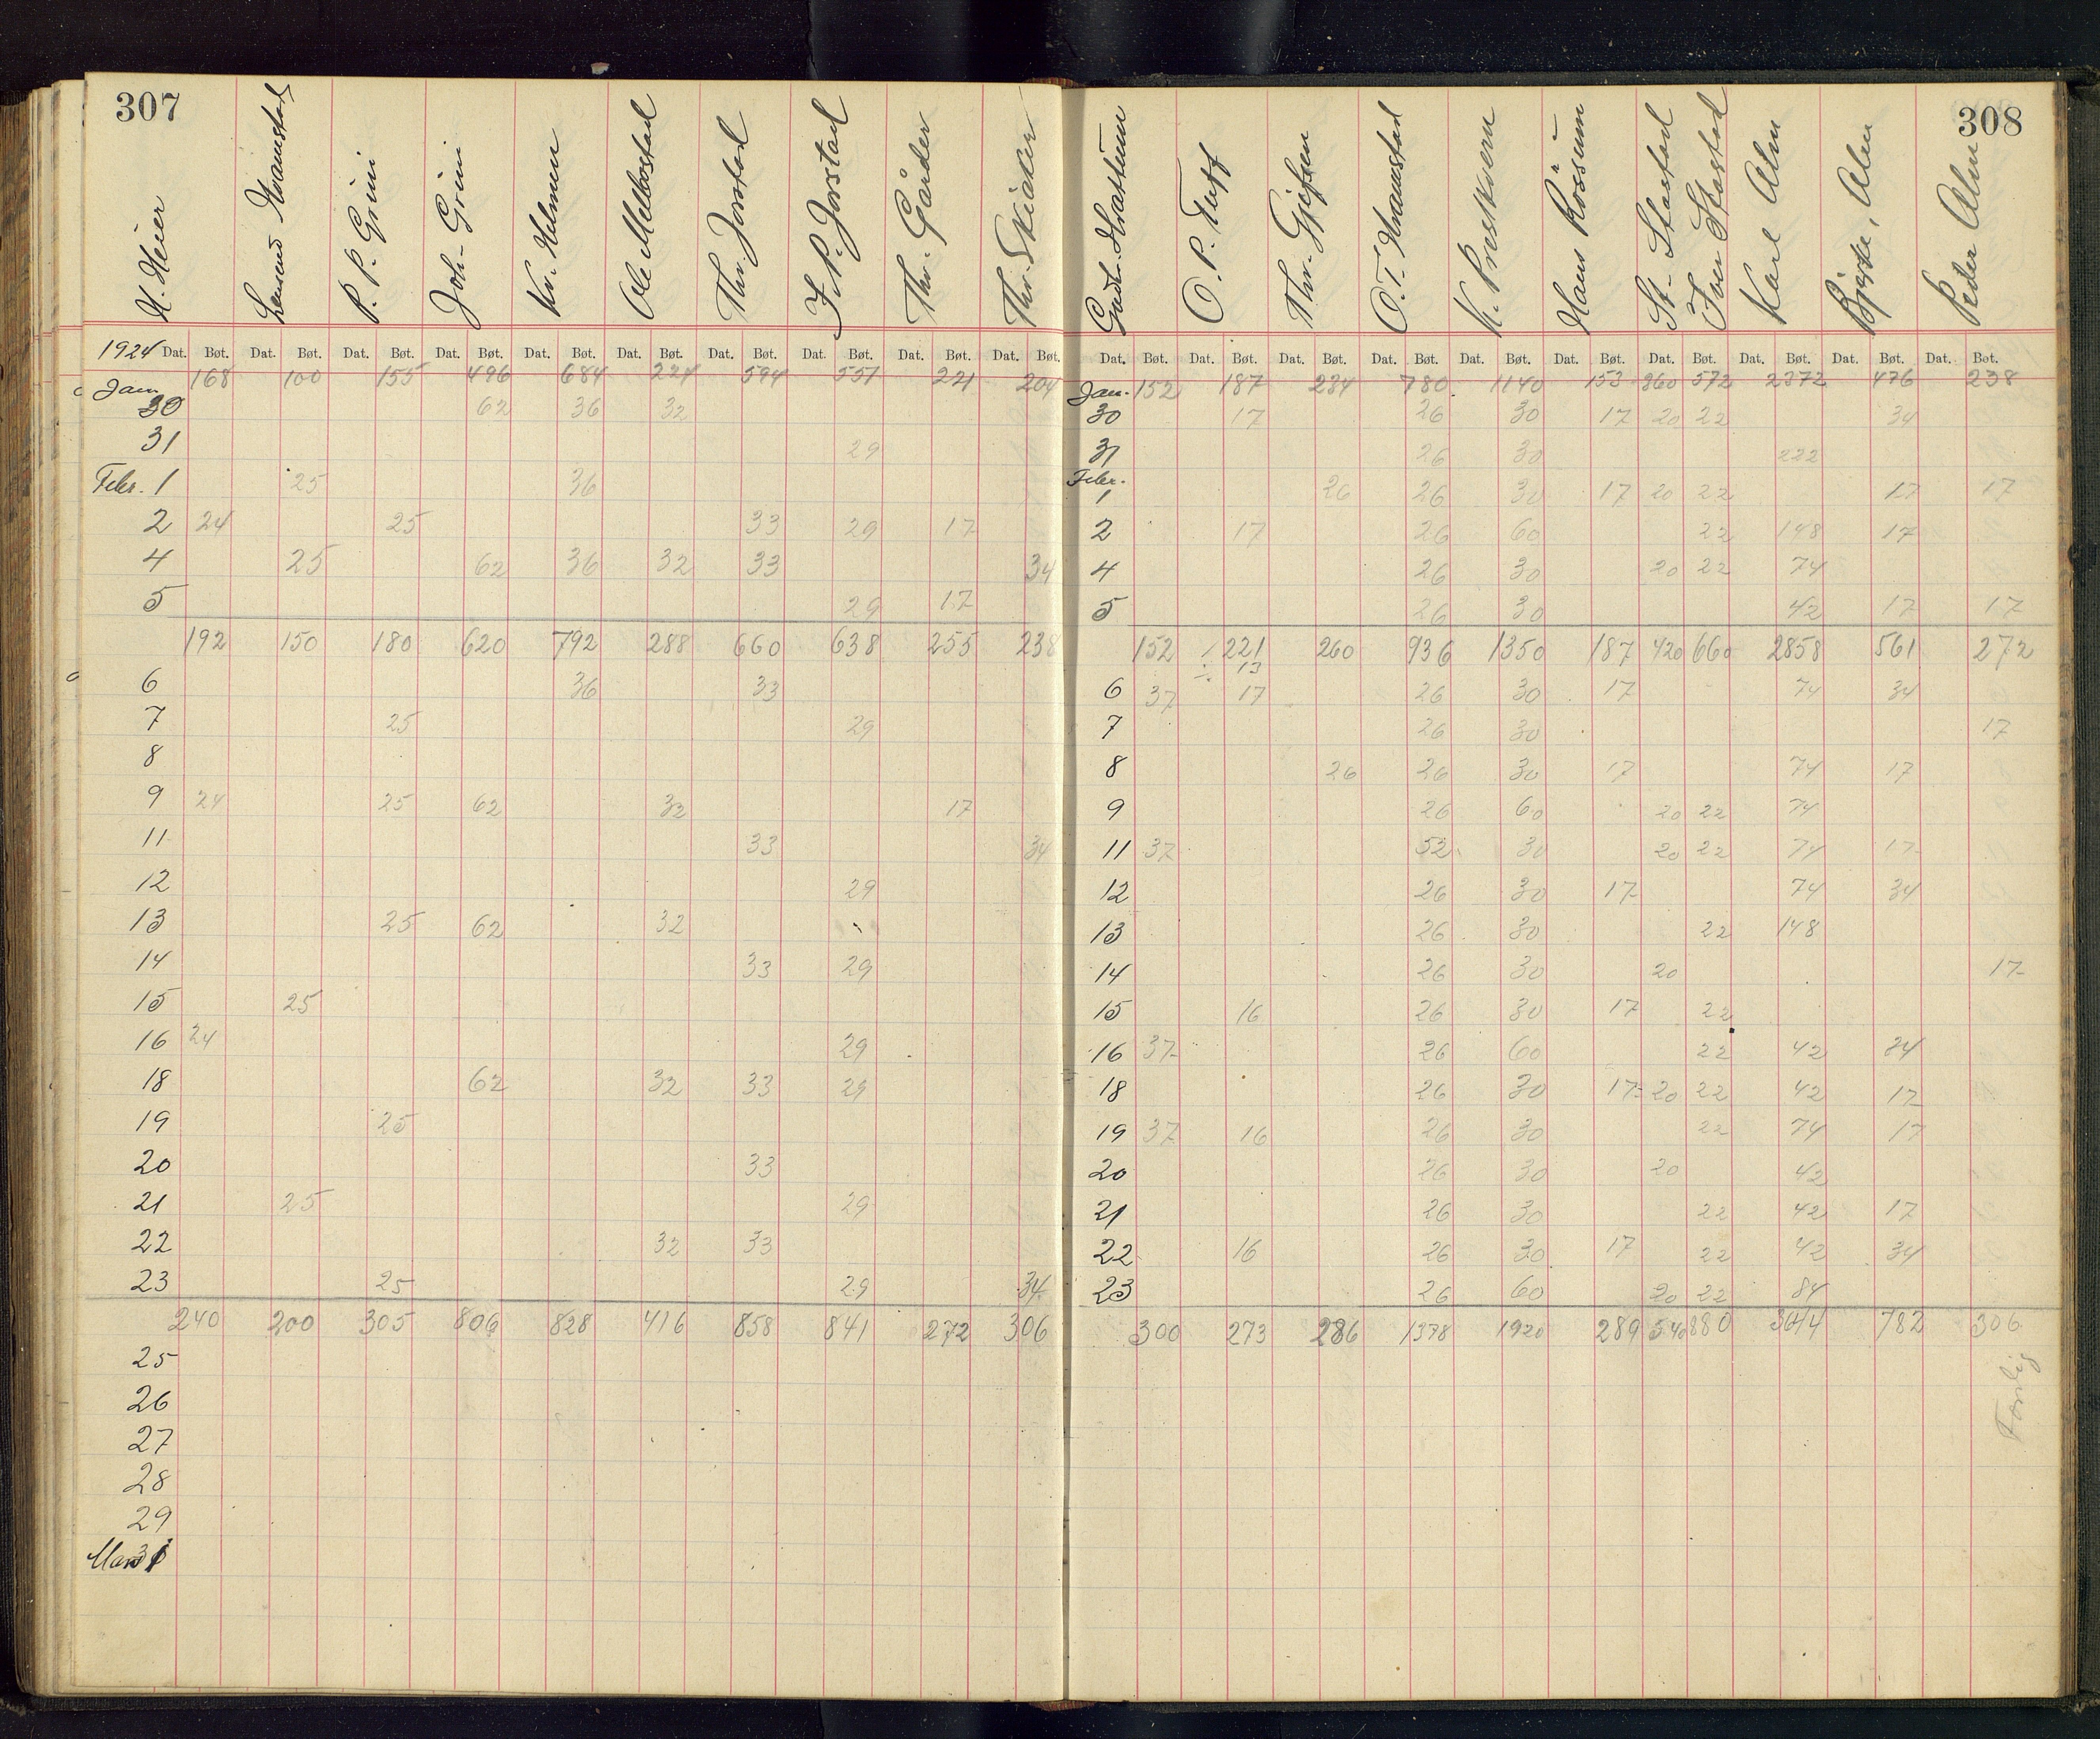 307
M. Heier
Hvamstad
P. P. Grini
Joh. Grini
Kr. Helmen
Ole Melbostad
Thr. Jorstad
J. P. Jorstad
Thr. Gårder
Thr. Skiaker
1924 Dat. Bøt. Dat. Bøt. Dat. Bøt. Dat. Bøt. Dat. Bøt. Dat. Bøt. Dat. Bøt. Dat. Bøt. Dat. Bøt. Dat. Bøt.
Jan. 168 100 155 496 684 224 594 551 221 204
30 62 36 32
31 29
Febr. 1 25 36
2 24 25 33 29 17
4 25 62 36 32 33 34
5 29 17
192 150 180 620 792 288 660 638 255 238
6 36 33
7 25 29
8
9 24 25 62 32 17
11 33 34
12 29
13 25 62 32
14 33 29
15 25
16 24 29
18 62 32 33 29
19 25
20 33
21 25 29
22 32 33
23 25 29 34
240 200 305 806 828 416 858 841 272 306
25
26
27
28
29
Mars 1
308
Gudr. Hvattum
O. P. Tuff
Thr. Gjefsen
O. T. Hvamstad
K. Prestkvern
Hans Rossum
St. Stastad
Iver Stastad
Karl Alm
Bjerke, Alm
Peder Alm
Dat. Bøt. Dat. Bøt. Dat. Bøt. Dat. Bøt. Dat. Bøt. Dat. Bøt. Dat. Bøt. Dat. Bøt. Dat. Bøt. Dat. Bøt.
Jan. 152 187 234 780 1140 153 360 572 2372 476 238
30 17 26 30 17 20 22 34
31 26 30 222
Febr.
1 26 26 30 17 20 22 17 17
2 17 26 60 22 148 17
4 26 30 20 22 74
5 26 30 42 17 17
152 221 260 936 1350 187 420 660 2858 561 272
13
6 37 17 26 30 17 74 34
7 26 30 17
8 26 26 30 17 74 17
9 26 60 20 22 74
11 37 52 30 20 22 74 17
12 26 30 17 74 34
13 26 30 22 148
14 26 30 20 17
15 16 26 30 17 22
16 37 26 60 22 42 34
18 26 30 17 20 22 42 17
19 37 16 26 30 22 74 17
20 26 30 20 42
21 26 30 22 42 17
22 16 26 30 17 22 42 34
23 26 60 20 22 84
300 273 286 1378 1920 289 540 880 3644 782 306